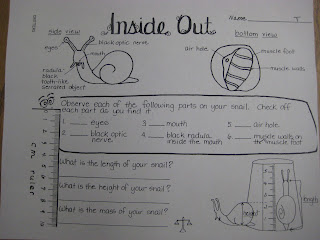 Inside Out
Name
side view
bottom view
eyes
black optic nerve
mouth
radula:
black
tooth-like
serrated object
air hole
muscle foot
muscle walls
Observe each of the following parts on your snail. Check off
each part as you find it.
1. ____ eyes
3. ____ mouth
5. ____ air hole
2. ____ black optic
nerve
4. ____ black radula
inside the mouth
6. ____ muscle walls on
the muscle foot
cm ruler
What is the length of your snail?
What is the height of your snail?
What is the mass of your snail?
height
length